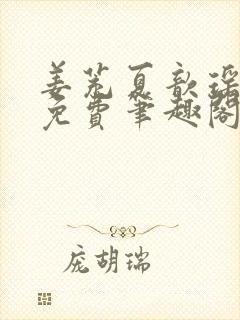 姜芜夏歆瑶
免费笔趣阁
庞胡瑞